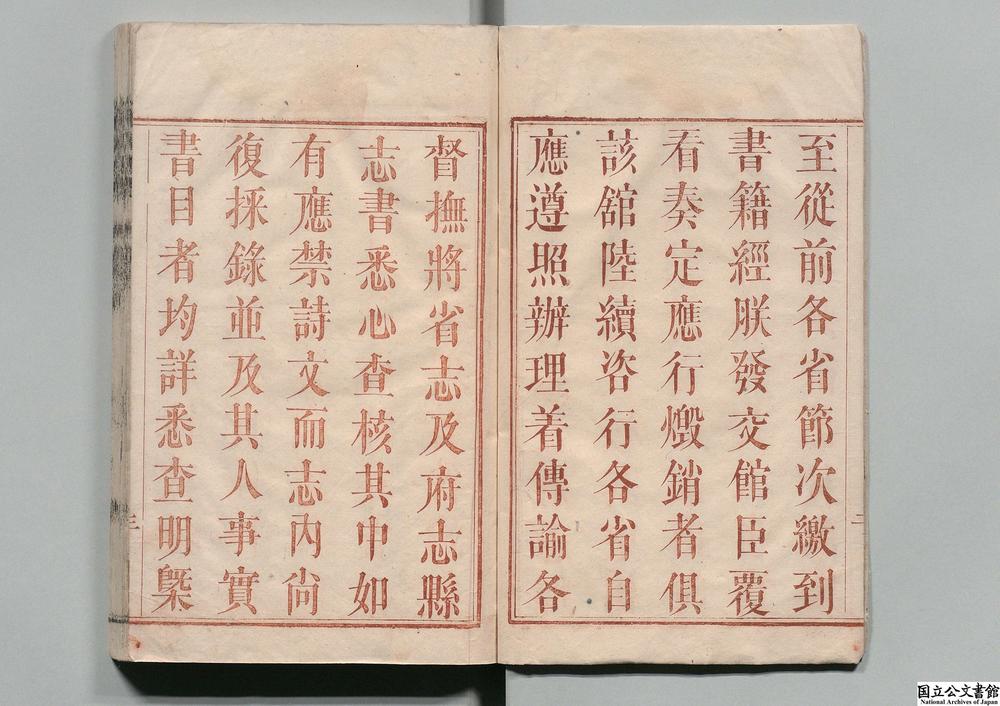 至從前各省節次繳到
書籍經朕發交館臣覆
看奏定應行燬銷者俱
該舘陸續咨行各省自
應遵照辦理着傳諭各
督撫將省志及府志縣
志書悉心查核其中如
有應禁詩文而志內尚
復採錄並及其人事實
書目者均詳悉查明槩
二
三
国立公文書館
National Archives of Japan